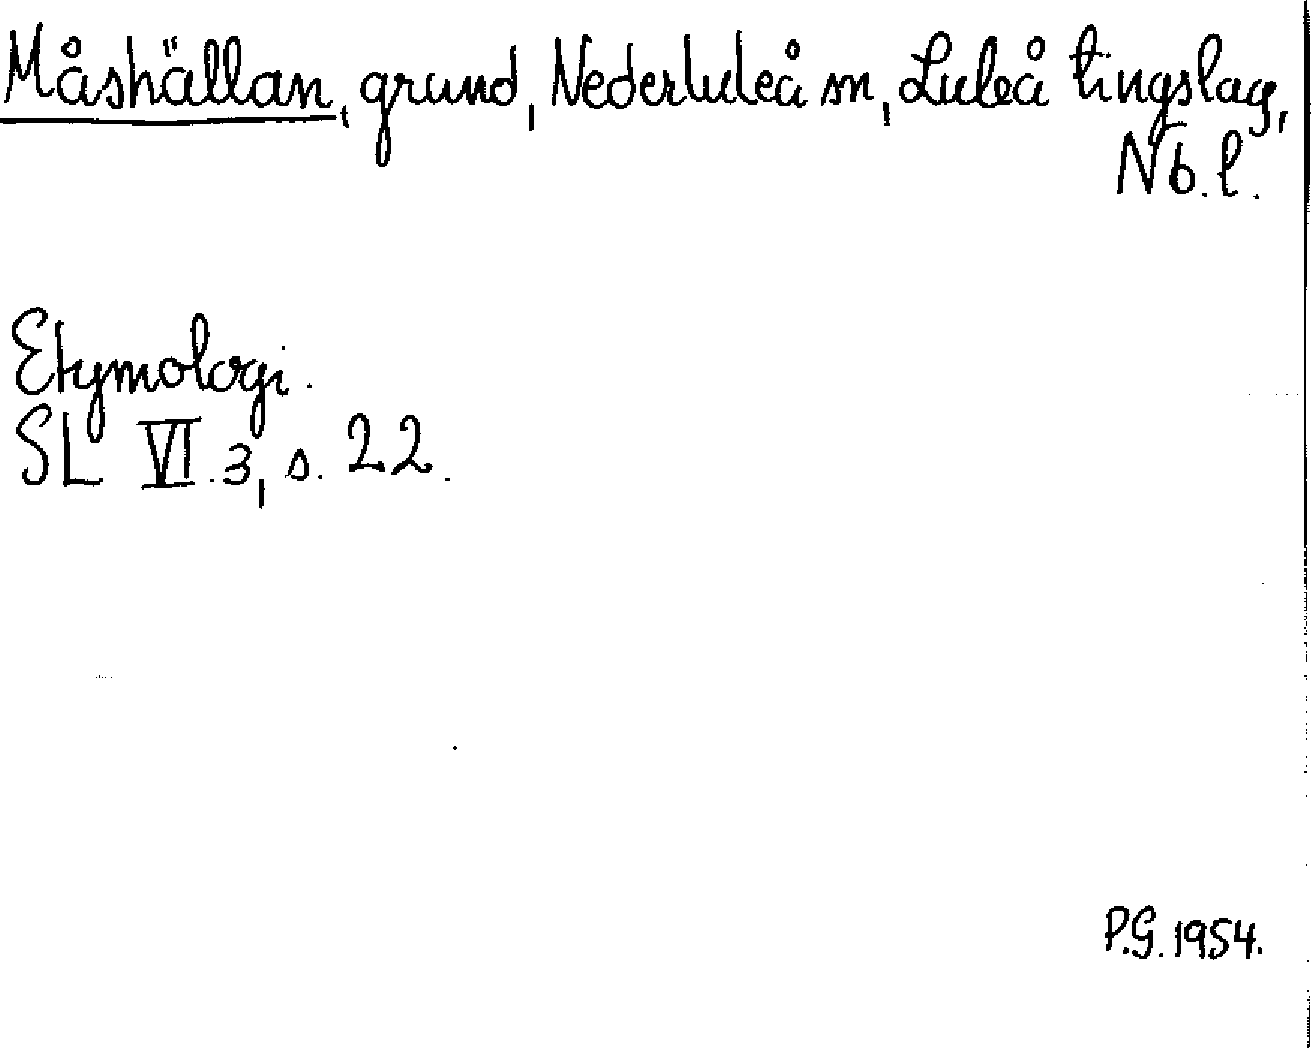 Måshällan, grund, Nederluleå sn, Luleå tingslag,
Nb. l.
Etymologi.
SL VI.3, s. 22.
P.G. 1954.